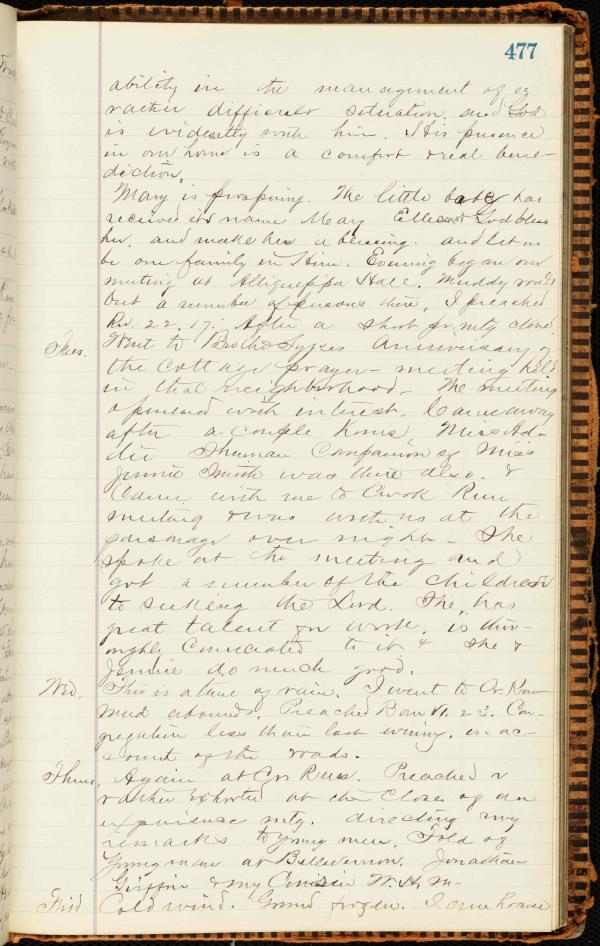 477
ability in the management of a
rather difficult situation, and God
is evidently with him. His presence
in our home is a comfort & real bene-
diction.
Mary is prospering. The little babe has
received its name Mary Ellenor God bless
her, and make her a blessing. and let us
be one family in Him. Evening began our
meeting at Alliquippa Hall. Muddy roads
but a number of persons there, I preached
Rev. 22.17. After a short pr. mtg closed
Tues. Went to Brother Sypes Anniversary of
the cottage prayer-meeting held
in that neighborhood. The meeting
opened with interest. Came away
after a couple hours. Miss Ad-
die Sherman Companion of Miss
Jennie Smith was there also. &
Came with me to Crook Run
meeting & was with us at the
parsonage over night. She
spoke at the meeting and
got a number of the children
to seeking the Lord. She has
great talent for work, is thor-
oughly consecrated to it & she &
Jennie do much good.
Wed. This is a time of rain. I went to Cr. Run
mud abounds. Preached Rom 11.22. Con-
gregation less than last evening, on ac-
count of the roads.
Thurs. Again at Cr. Run. Preached &
rather Exhorted at the close of an
experience mtg. directing my
remarks to young men. Told of
Young man at Bellevernon. Jonathan
Griffin & my Cousin W. H. M-
Frid Cold wind. Ground frozen. I came home